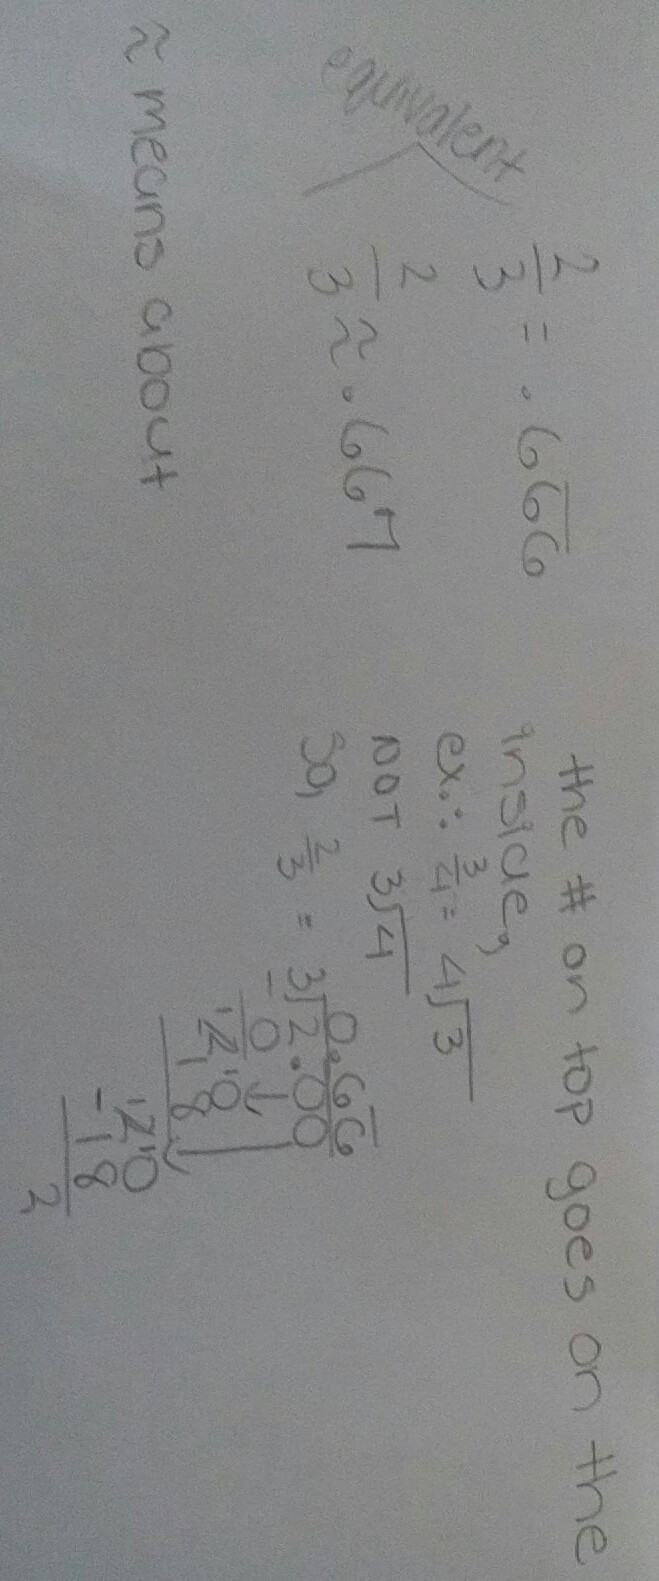 equivalent
2
3
= .666
2
3
≈ .667
≈ means about
the # on top goes on the
inside,
ex.: 3/4 = 4√3
not 3√4
So, 2/3 = 3√2.00
0.66
- 0
20
18
20
- 18
2